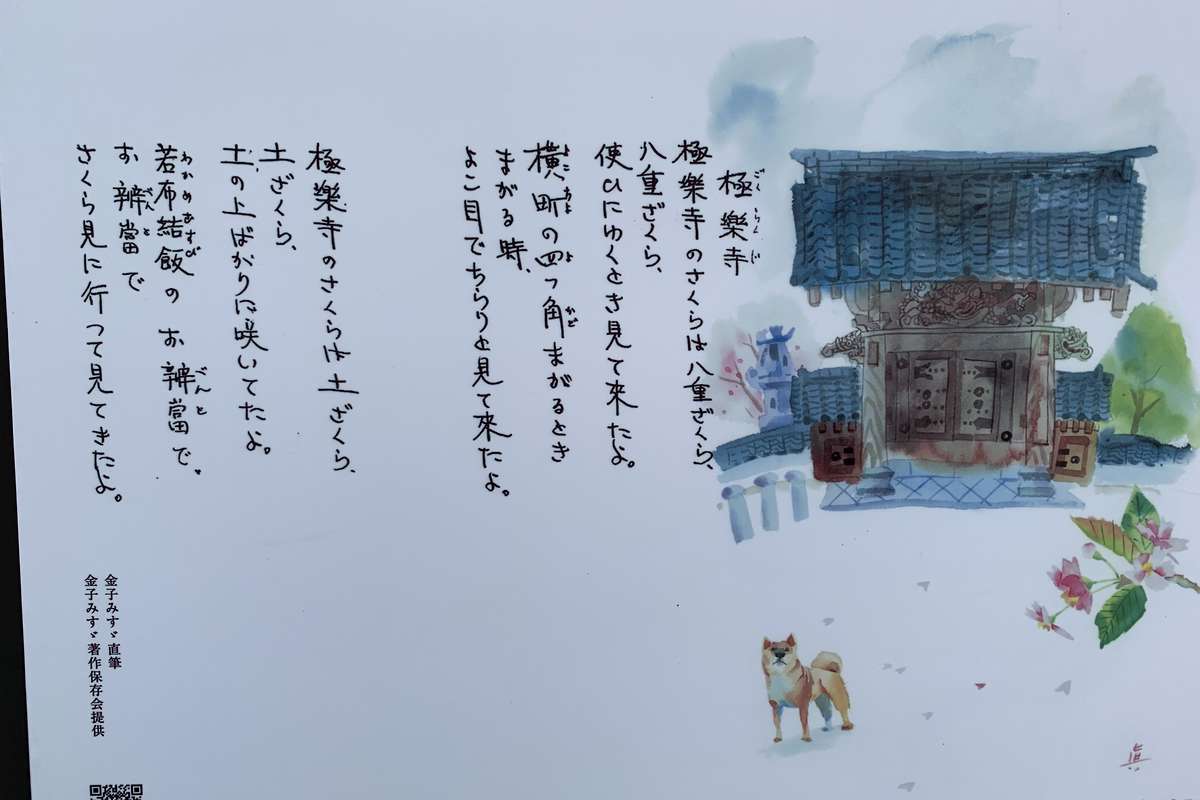 極樂寺
ごくらくじ
極樂寺のさくらは八重ざくら、
八重ざくら、
使ひにゆくとき見て來たよ。
横町の四つ角まがるとき
よこちょ よ かど
まがる時、
よこ目でちらりと見て來たよ。
極樂寺のさくらは土ざくら、
土ざくら、
土の上ばかりに咲いてたよ。
若布結飯のお辨當で。
わかめむすび べんと
お辨當で
べんと
さくら見に行つて見てきたよ。
金子みすゞ直筆
金子みすゞ著作保存会提供